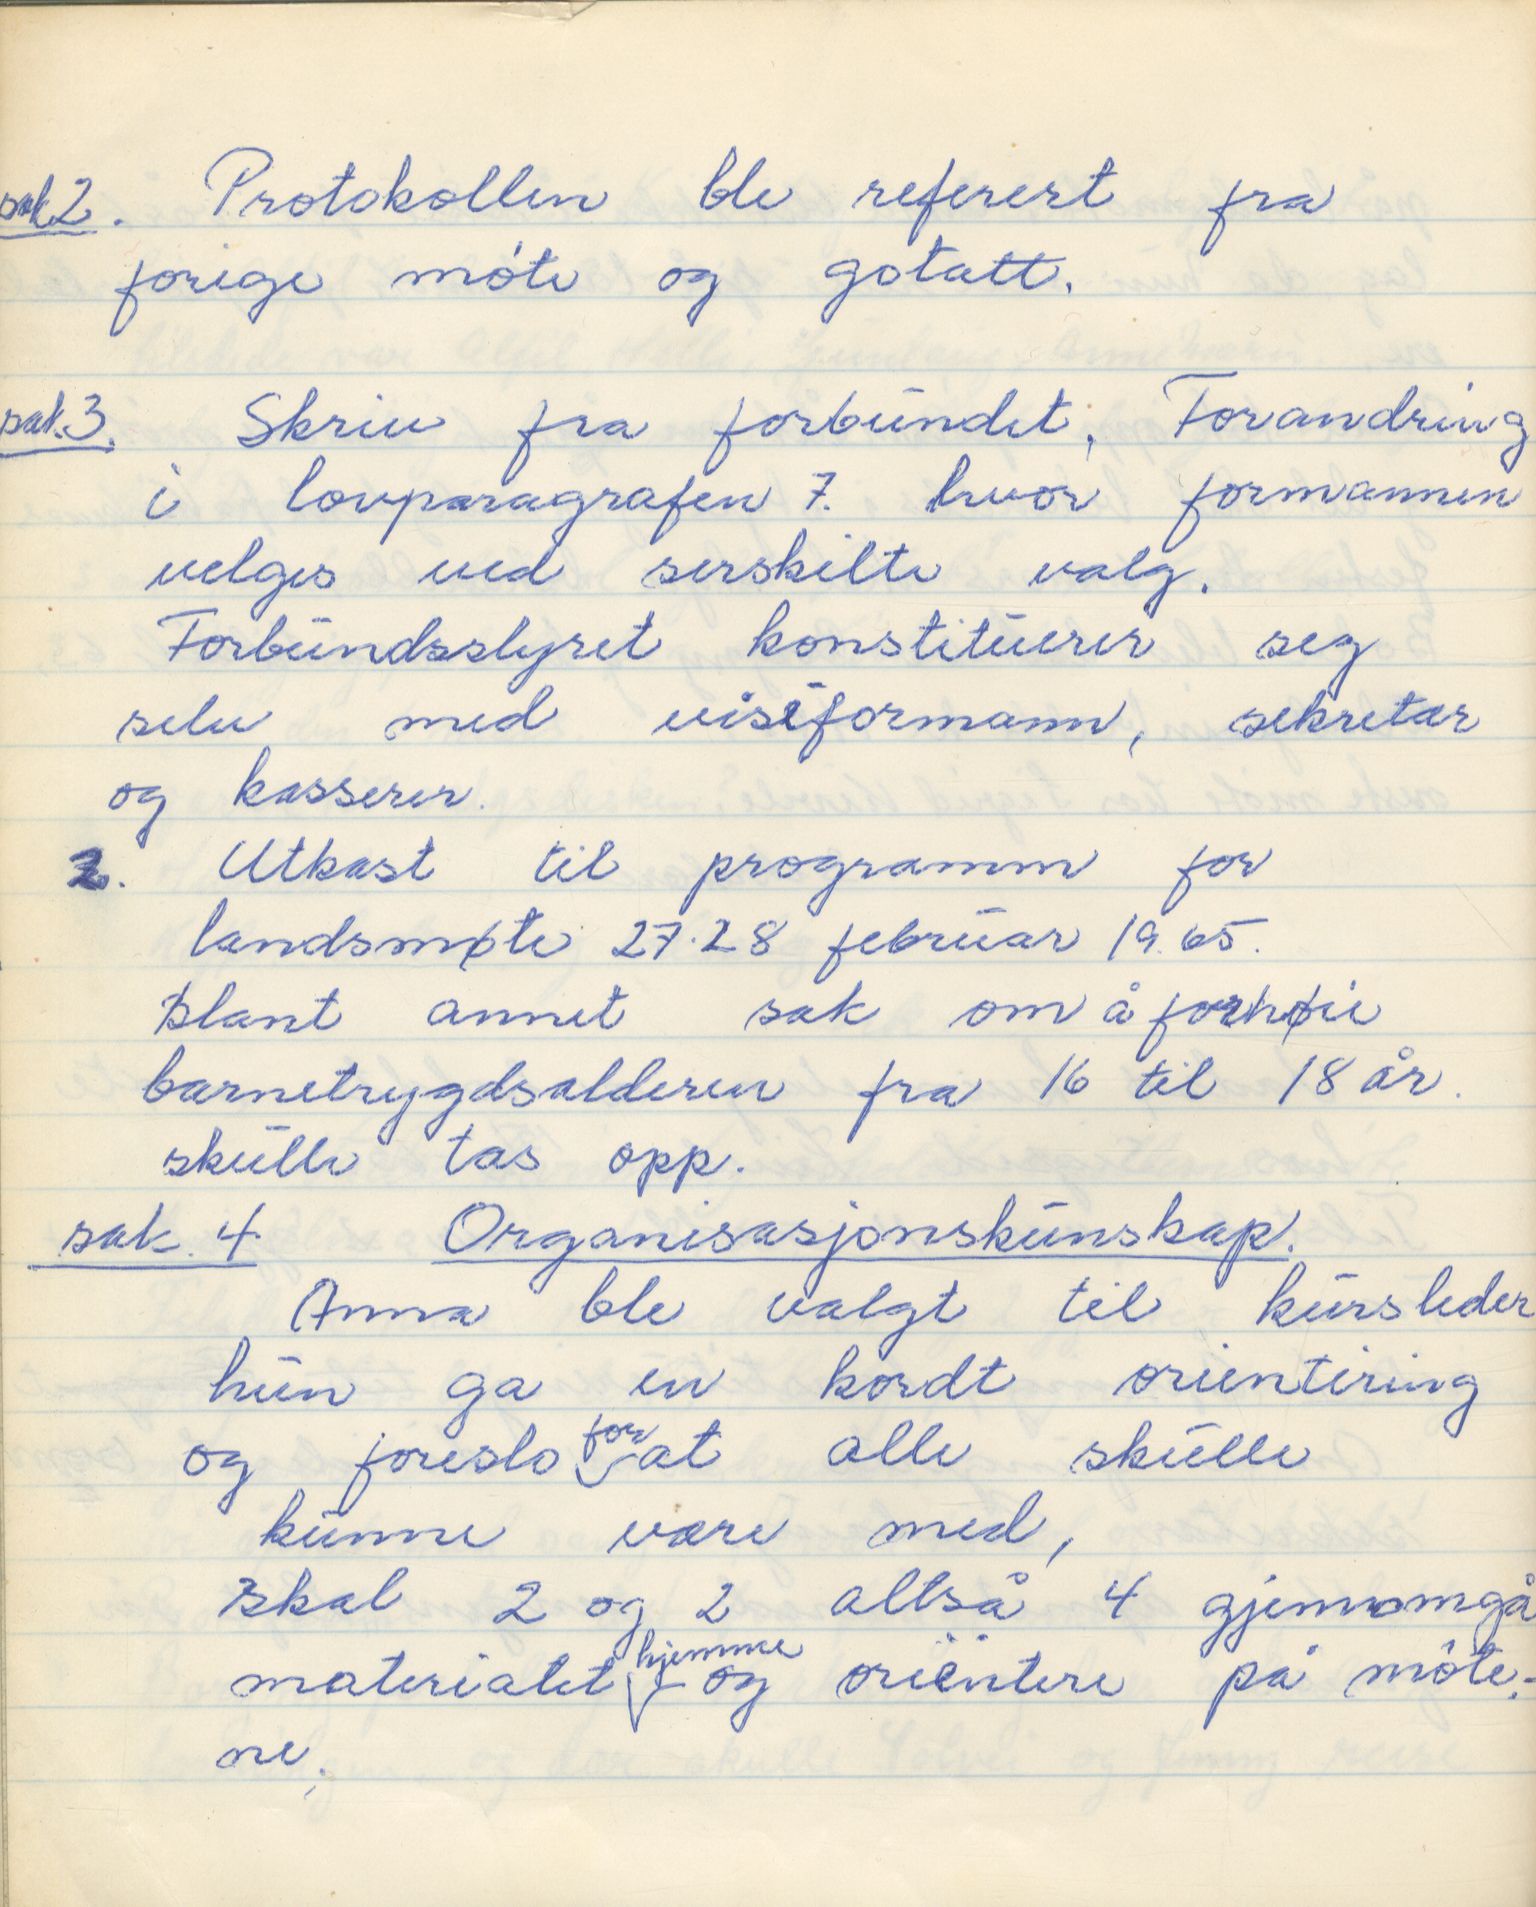 sak 2. Protokollen ble referert fra
forige møte og gotatt.
sak. 3. Skriv fra forbundet, Forandring
i lovparagrafen 7. hvor formannen
velges ved serskilte valg.
Forbundsstyret konstituerer seg
selv med viseformann, sekretær
og kasserer.
2. Utkast til programm for
landsmøte 27.28 februar 19.65.
blant annet sak om å forhøie
barnetrygdsalderen fra 16 til 18 år.
skulle tas opp.
sak. 4. Organisasjonskunskap.
Anna ble valgt til kursleder
hun ga en kordt orientiring
og foreslo for at alle skulle
kunne være med,
skal 2 og 2 altså 4 gjennomgå
materialet hjemme og orientere på møte-
ne.